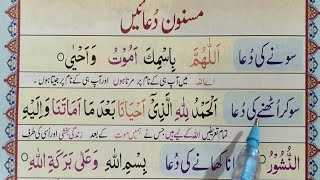 مسنون دُعائیں
سونے کی دُعا اَللّٰهُمَّ بِاسْمِكَ اَمُوْتُ وَاَحْيٰى
اے اللہ میں آپ ہی کے نام پر مرتا ہوں اور آپ ہی کے نام پر جیتا ہوں۔
سو کر اُٹھنے کی دُعا اَلْحَمْدُ لِلّٰهِ الَّذِىْٓ اَحْيَانَا بَعْدَ مَآ اَمَاتَنَا وَاِلَيْهِ
تمام تعریفیں اللہ کے لیے ہیں جس نے ہمیں موت کے بعد زندگی بخشی اور اسی کی طرف
النُّشُوْرُ کھانے کی دُعا بِسْمِ اللّٰهِ وَعَلٰى بَرَكَةِ اللّٰهِ